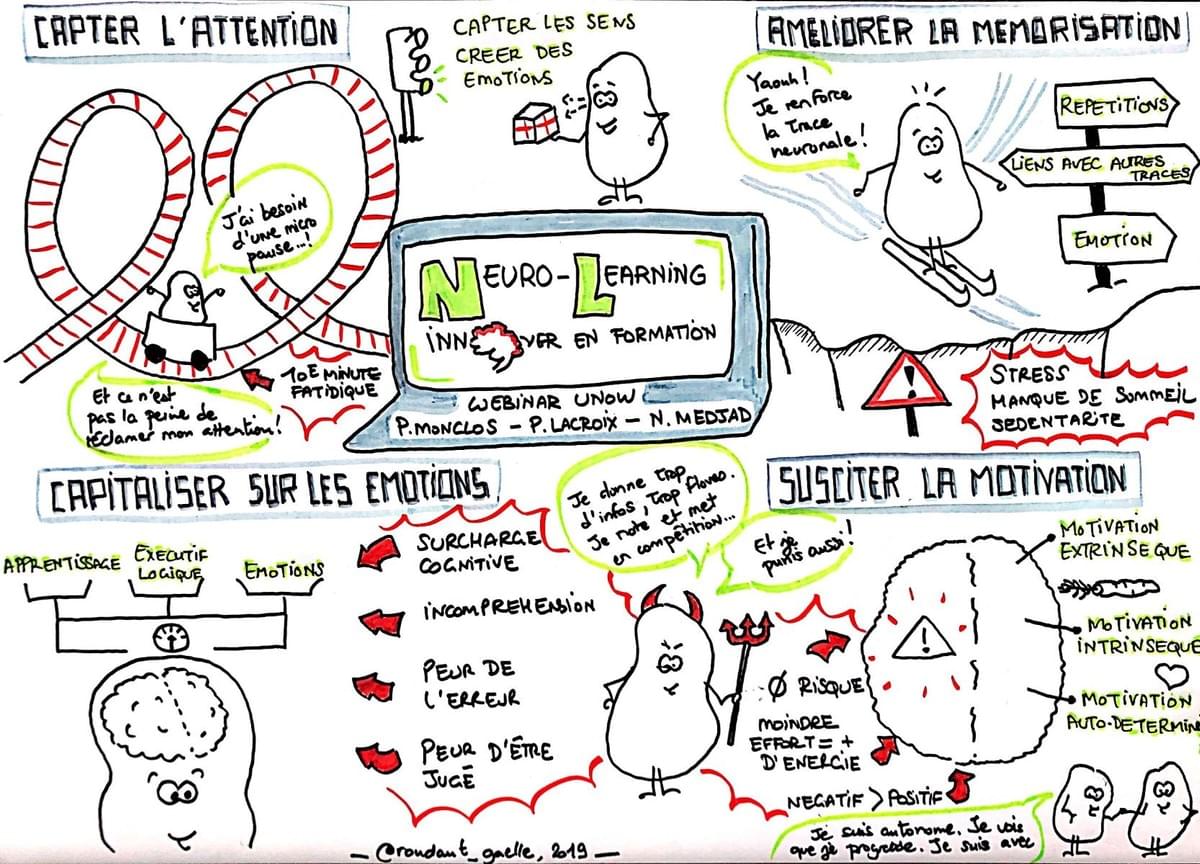 CAPTER L'ATTENTION
CAPTER LES SENS
CREER DES
EMOTIONS
J'ai besoin
d'une micro
pause...!
Et ce n'est
pas la peine de
réclamer mon attention!
10E MINUTE
FATIDIQUE
AMELIORER LA MEMORISATION
Yaouh!
Je renforce
la trace
neuronale!
REPETITIONS
LIENS AVEC AUTRES
TRACES
EMOTION
!
STRESS
MANQUE DE SOMMEIL
SEDENTARITE
NEURO-LEARNING
INNOVER EN FORMATION
WEBINAR UNOW
P.MONCLOS - P.LACROIX - N.MEDJAD
CAPITALISER SUR LES EMOTIONS
APPRENTISSAGE
EXECUTIF
LOGIQUE
EMOTIONS
SURCHARGE
COGNITIVE
INCOMPREHENSION
PEUR DE
L'ERREUR
PEUR D'ÊTRE
JUGÉ
Je donne trop
d'infos, trop floues.
Je note et met
en compétition...
Et je
punis aussi!
SUSCITER LA MOTIVATION
MOTIVATION
EXTRINSEQUE
MOTIVATION
INTRINSEQUE
MOTIVATION
AUTO-DETERMIN
!
Ø RISQUE
MOINDRE
EFFORT = +
D'ENERGIE
NEGATIF > POSITIF
Je suis autonome. Je vois
que je progresse. Je suis avec
— @roudaut_gaelle, 2019 —